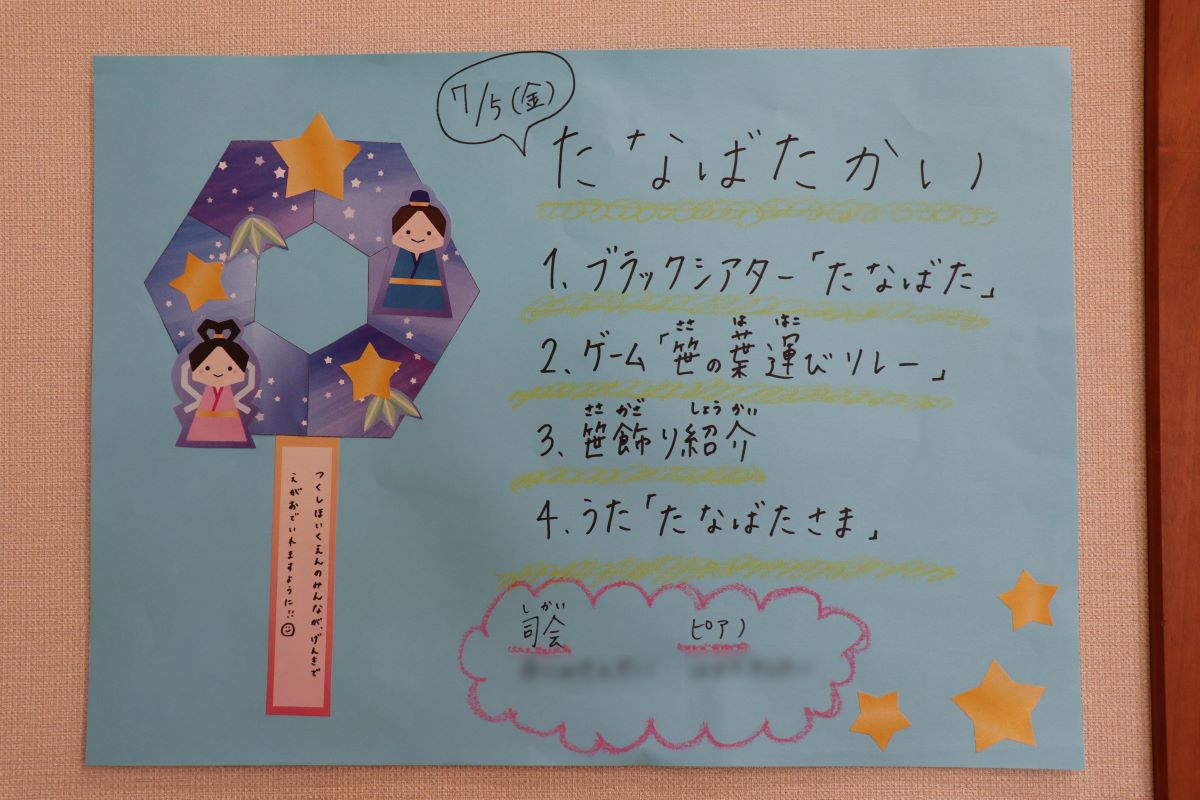 7/5(金)
たなばたかい
1、ブラックシアター「たなばた」
ささ は はこ
2、ゲーム「笹の葉運びリレー」
ささ かざ しょうかい
3、笹飾り紹介
4、うた「たなばたさま」
しかい
司会 ピアノ
つくしほいくえんのみんなが、げんきで
えがおでいれますように!!